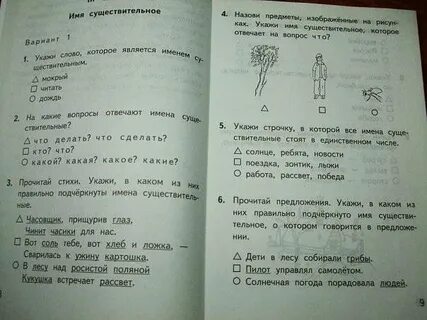 Имя существительное
Вариант 1
1. Укажи слово, которое является именем су-
ществительным.
△ мокрый
□ читать
○ дождь
2. На какие вопросы отвечают имена суще-
ствительные?
△ что делать? что сделать?
□ кто? что?
○ какой? какая? какое? какие?
3. Прочитай стихи. Укажи, в каком из них
правильно подчёркнуты имена существитель-
ные.
△ Часовщик, прищурив глаз,
Чинит часики для нас.
□ Вот соль тебе, вот хлеб и ложка, —
Сварилась к ужину картошка.
○ В лесу над росистой поляной
Кукушка встречает рассвет.
4. Назови предметы, изображённые на рисун-
ках. Укажи имя существительное, которое
отвечает на вопрос что?
△ □ ○
5. Укажи строчку, в которой все имена суще-
ствительные стоят в единственном числе.
△ солнце, ребята, новости
□ поездка, зонтик, лыжи
○ работа, рассвет, победа
6. Прочитай предложения. Укажи, в каком из
них правильно подчёркнуто имя существитель-
ное, о котором говорится в предложе-
нии.
△ Дети в лесу собирали грибы.
□ Пилот управлял самолётом.
○ Солнечная погода порадовала людей.
9